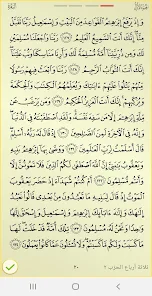 البقرة
وَإِذْ يَرْفَعُ إِبْرَٰهِۦمُ ٱلْقَوَاعِدَ مِنَ ٱلْبَيْتِ وَإِسْمَٰعِيلُ رَبَّنَا تَقَبَّلْ
مِنَّآ إِنَّكَ أَنتَ ٱلسَّمِيعُ ٱلْعَلِيمُ ١٢٧ رَبَّنَا وَٱجْعَلْنَا مُسْلِمَيْنِ لَكَ
وَمِن ذُرِّيَّتِنَآ أُمَّةً مُّسْلِمَةً لَّكَ وَأَرِنَا مَنَاسِكَنَا وَتُبْ عَلَيْنَآ
إِنَّكَ أَنتَ ٱلتَّوَّابُ ٱلرَّحِيمُ ١٢٨ رَبَّنَا وَٱبْعَثْ فِيهِمْ رَسُولًا
مِّنْهُمْ يَتْلُوا۟ عَلَيْهِمْ ءَايَٰتِكَ وَيُعَلِّمُهُمُ ٱلْكِتَٰبَ وَٱلْحِكْمَةَ
وَيُزَكِّيهِمْ إِنَّكَ أَنتَ ٱلْعَزِيزُ ٱلْحَكِيمُ ١٢٩ وَمَن يَرْغَبُ عَن
مِّلَّةِ إِبْرَٰهِۦمَ إِلَّا مَن سَفِهَ نَفْسَهُۥ وَلَقَدِ ٱصْطَفَيْنَٰهُ فِى ٱلدُّنْيَا
وَإِنَّهُۥ فِى ٱلْءَاخِرَةِ لَمِنَ ٱلصَّٰلِحِينَ ١٣٠ إِذْ قَالَ لَهُۥ رَبُّهُۥٓ أَسْلِمْ
قَالَ أَسْلَمْتُ لِرَبِّ ٱلْعَٰلَمِينَ ١٣١ وَوَصَّىٰ بِهَآ إِبْرَٰهِۦمُ بَنِيهِ
وَيَعْقُوبُ يَٰبَنِىَّ إِنَّ ٱللَّهَ ٱصْطَفَىٰ لَكُمُ ٱلدِّينَ فَلَا تَمُوتُنَّ إِلَّا
وَأَنتُم مُّسْلِمُونَ ١٣٢ أَمْ كُنتُمْ شُهَدَآءَ إِذْ حَضَرَ يَعْقُوبَ
ٱلْمَوْتُ إِذْ قَالَ لِبَنِيهِ مَا تَعْبُدُونَ مِنۢ بَعْدِى قَالُوا۟ نَعْبُدُ
إِلَٰهَكَ وَإِلَٰهَ ءَابَآئِكَ إِبْرَٰهِۦمَ وَإِسْمَٰعِيلَ وَإِسْحَٰقَ إِلَٰهًا
وَٰحِدًا وَنَحْنُ لَهُۥ مُسْلِمُونَ ١٣٣ تِلْكَ أُمَّةٌ قَدْ خَلَتْ لَهَا
مَا كَسَبَتْ وَلَكُم مَّا كَسَبْتُمْ وَلَا تُسْـَٔلُونَ عَمَّا كَانُوا۟ يَعْمَلُونَ ١٣٤
ثلاثة أرباع الحزب ٢ ٢٠